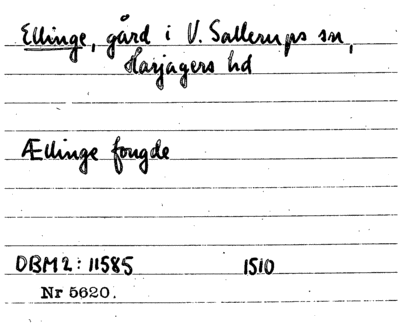 Ellinge, gård i V. Sallerups sn,
Harjagers hd
Ællinge fougde
DBM2: 11585 1510
Nr 5620.